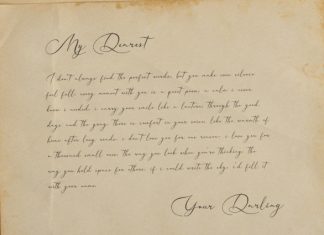 My Dearest
I don't always find the perfect words, but you make even silence
feel full. every moment with you is a quiet poem, a calm i never
knew i needed. i carry your smile like a lantern through the good
days and the gray. there is comfort in your voice like the warmth of
home after long roads. i don't love you for one reason. i love you for
a thousand small ones. the way you look when you're thinking. the
way you hold space for others. if i could write the sky, i'd fill it
with your name.
Your Darling